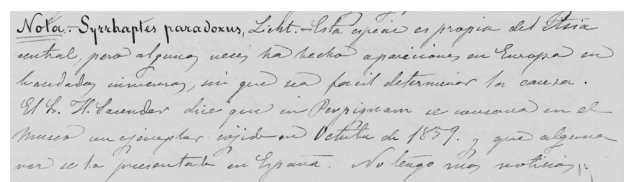 Nota.- Syrrhaptes paradoxus, Licht.- Esta especie es propia del Asia
central, pero algunas veces ha hecho apariciones en Europa en
bandadas inmensas, sin que sea facil determinar la causa.
El Sr. H. Saunders dice que in Perpignan se conserva en el
Museo un ejemplar cojido en Octubre de 1859. y que alguna
vez se ha presentado en España. No tengo mas noticias,,